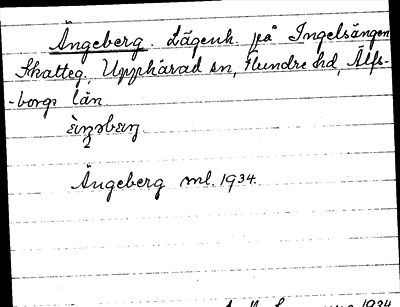 Ängeberg Lägenh. på Ingelsängen
Skatteg, Upphärad sn, Flundre hd, Älfs-
-borgs län
Ängeberg ml. 1934.
1934